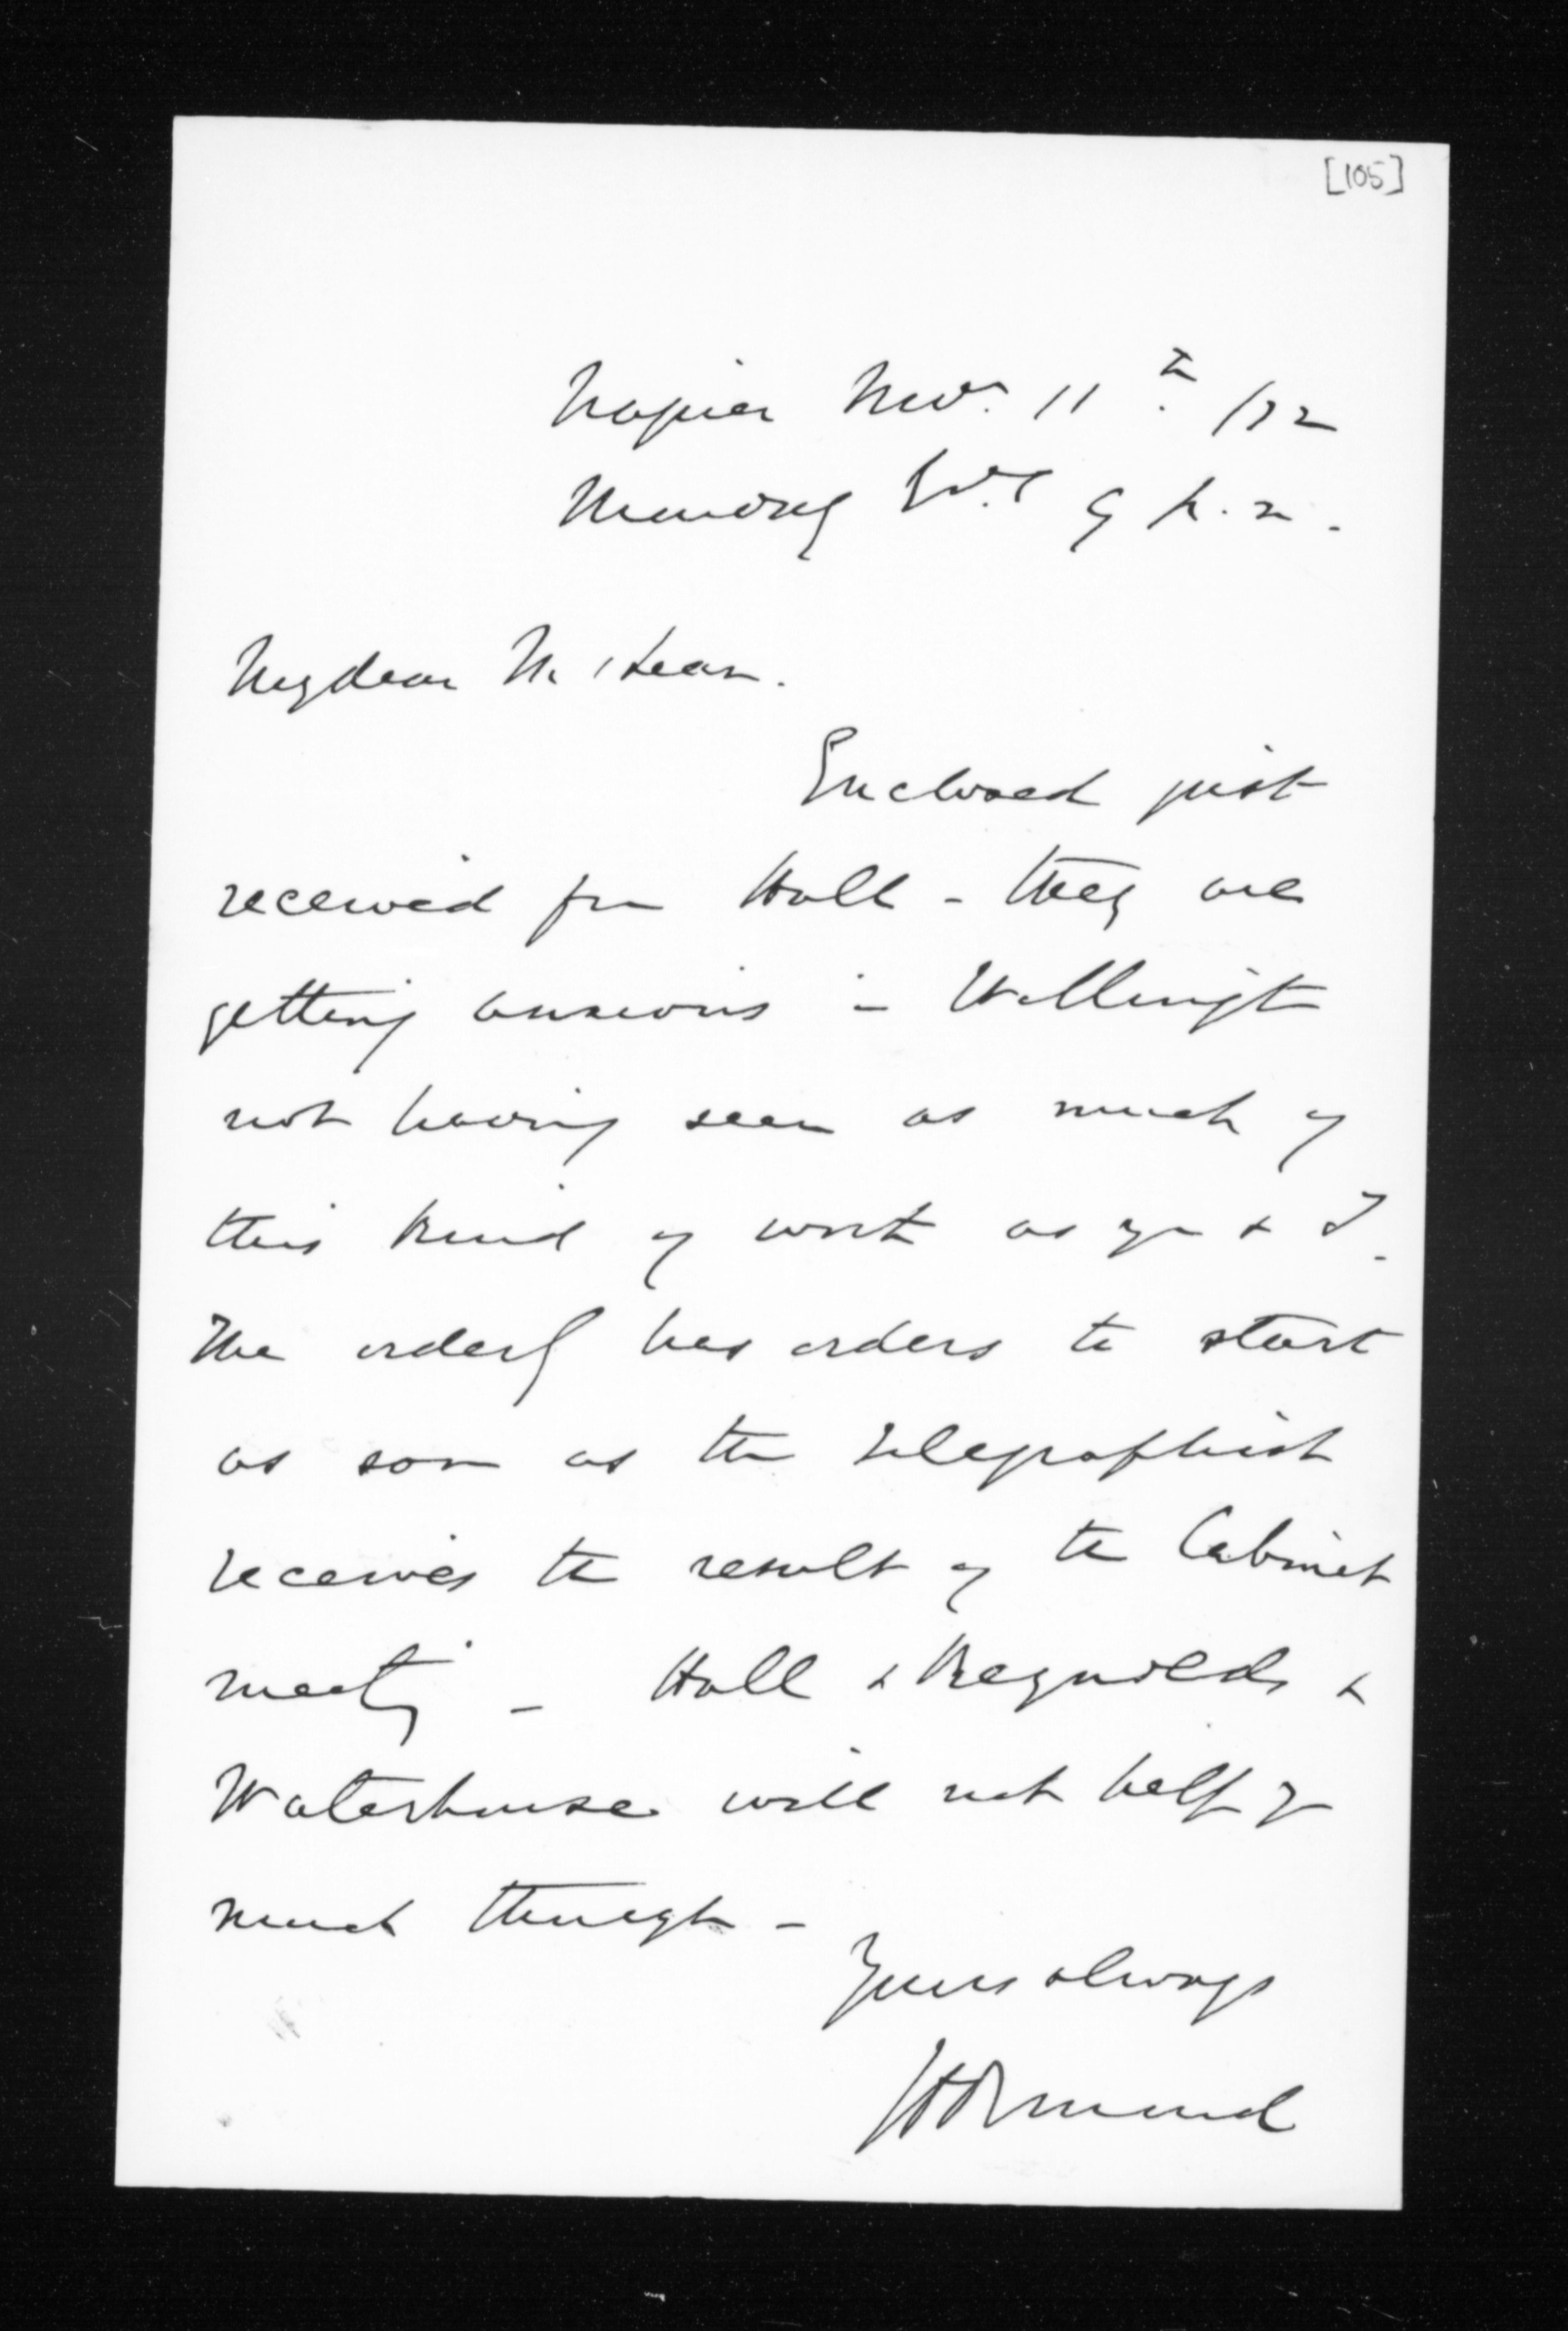 [105]
Napier Nov. 11th /72
Monday Evg 9 p.m.
My dear McLean.
Enclosed just
received from Hall - they are
getting anxious in Wellington
not having seen as much of
this kind of work as you & I.
The orderly has orders to start
as soon as the telegraphist
receives the result of the Cabinet
meeting - Hall & Reynolds &
Waterhouse will not help you
much though -
Yours always
JD Ormond